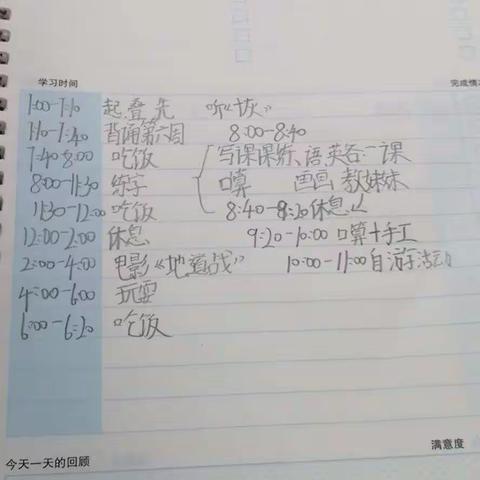 学习时间 完成情
1:00-7:10 起.叠.先 听
7:10-7:40 背诵第六周 8:00-8:40
7:40-8:00 吃饭 写课课练、语英各一课
8:00-11:30 练字 口算 画画 教妹妹
11:30-12:00 吃饭 8:40-9:20休息
12:00-2:00 休息 9:20-10:00 口算+手工
2:00-4:00 电影《地道战》 10:00-11:00自游活动
4:00-6:00 玩耍
6:00-6:20 吃饭
满意度
今天一天的回顾